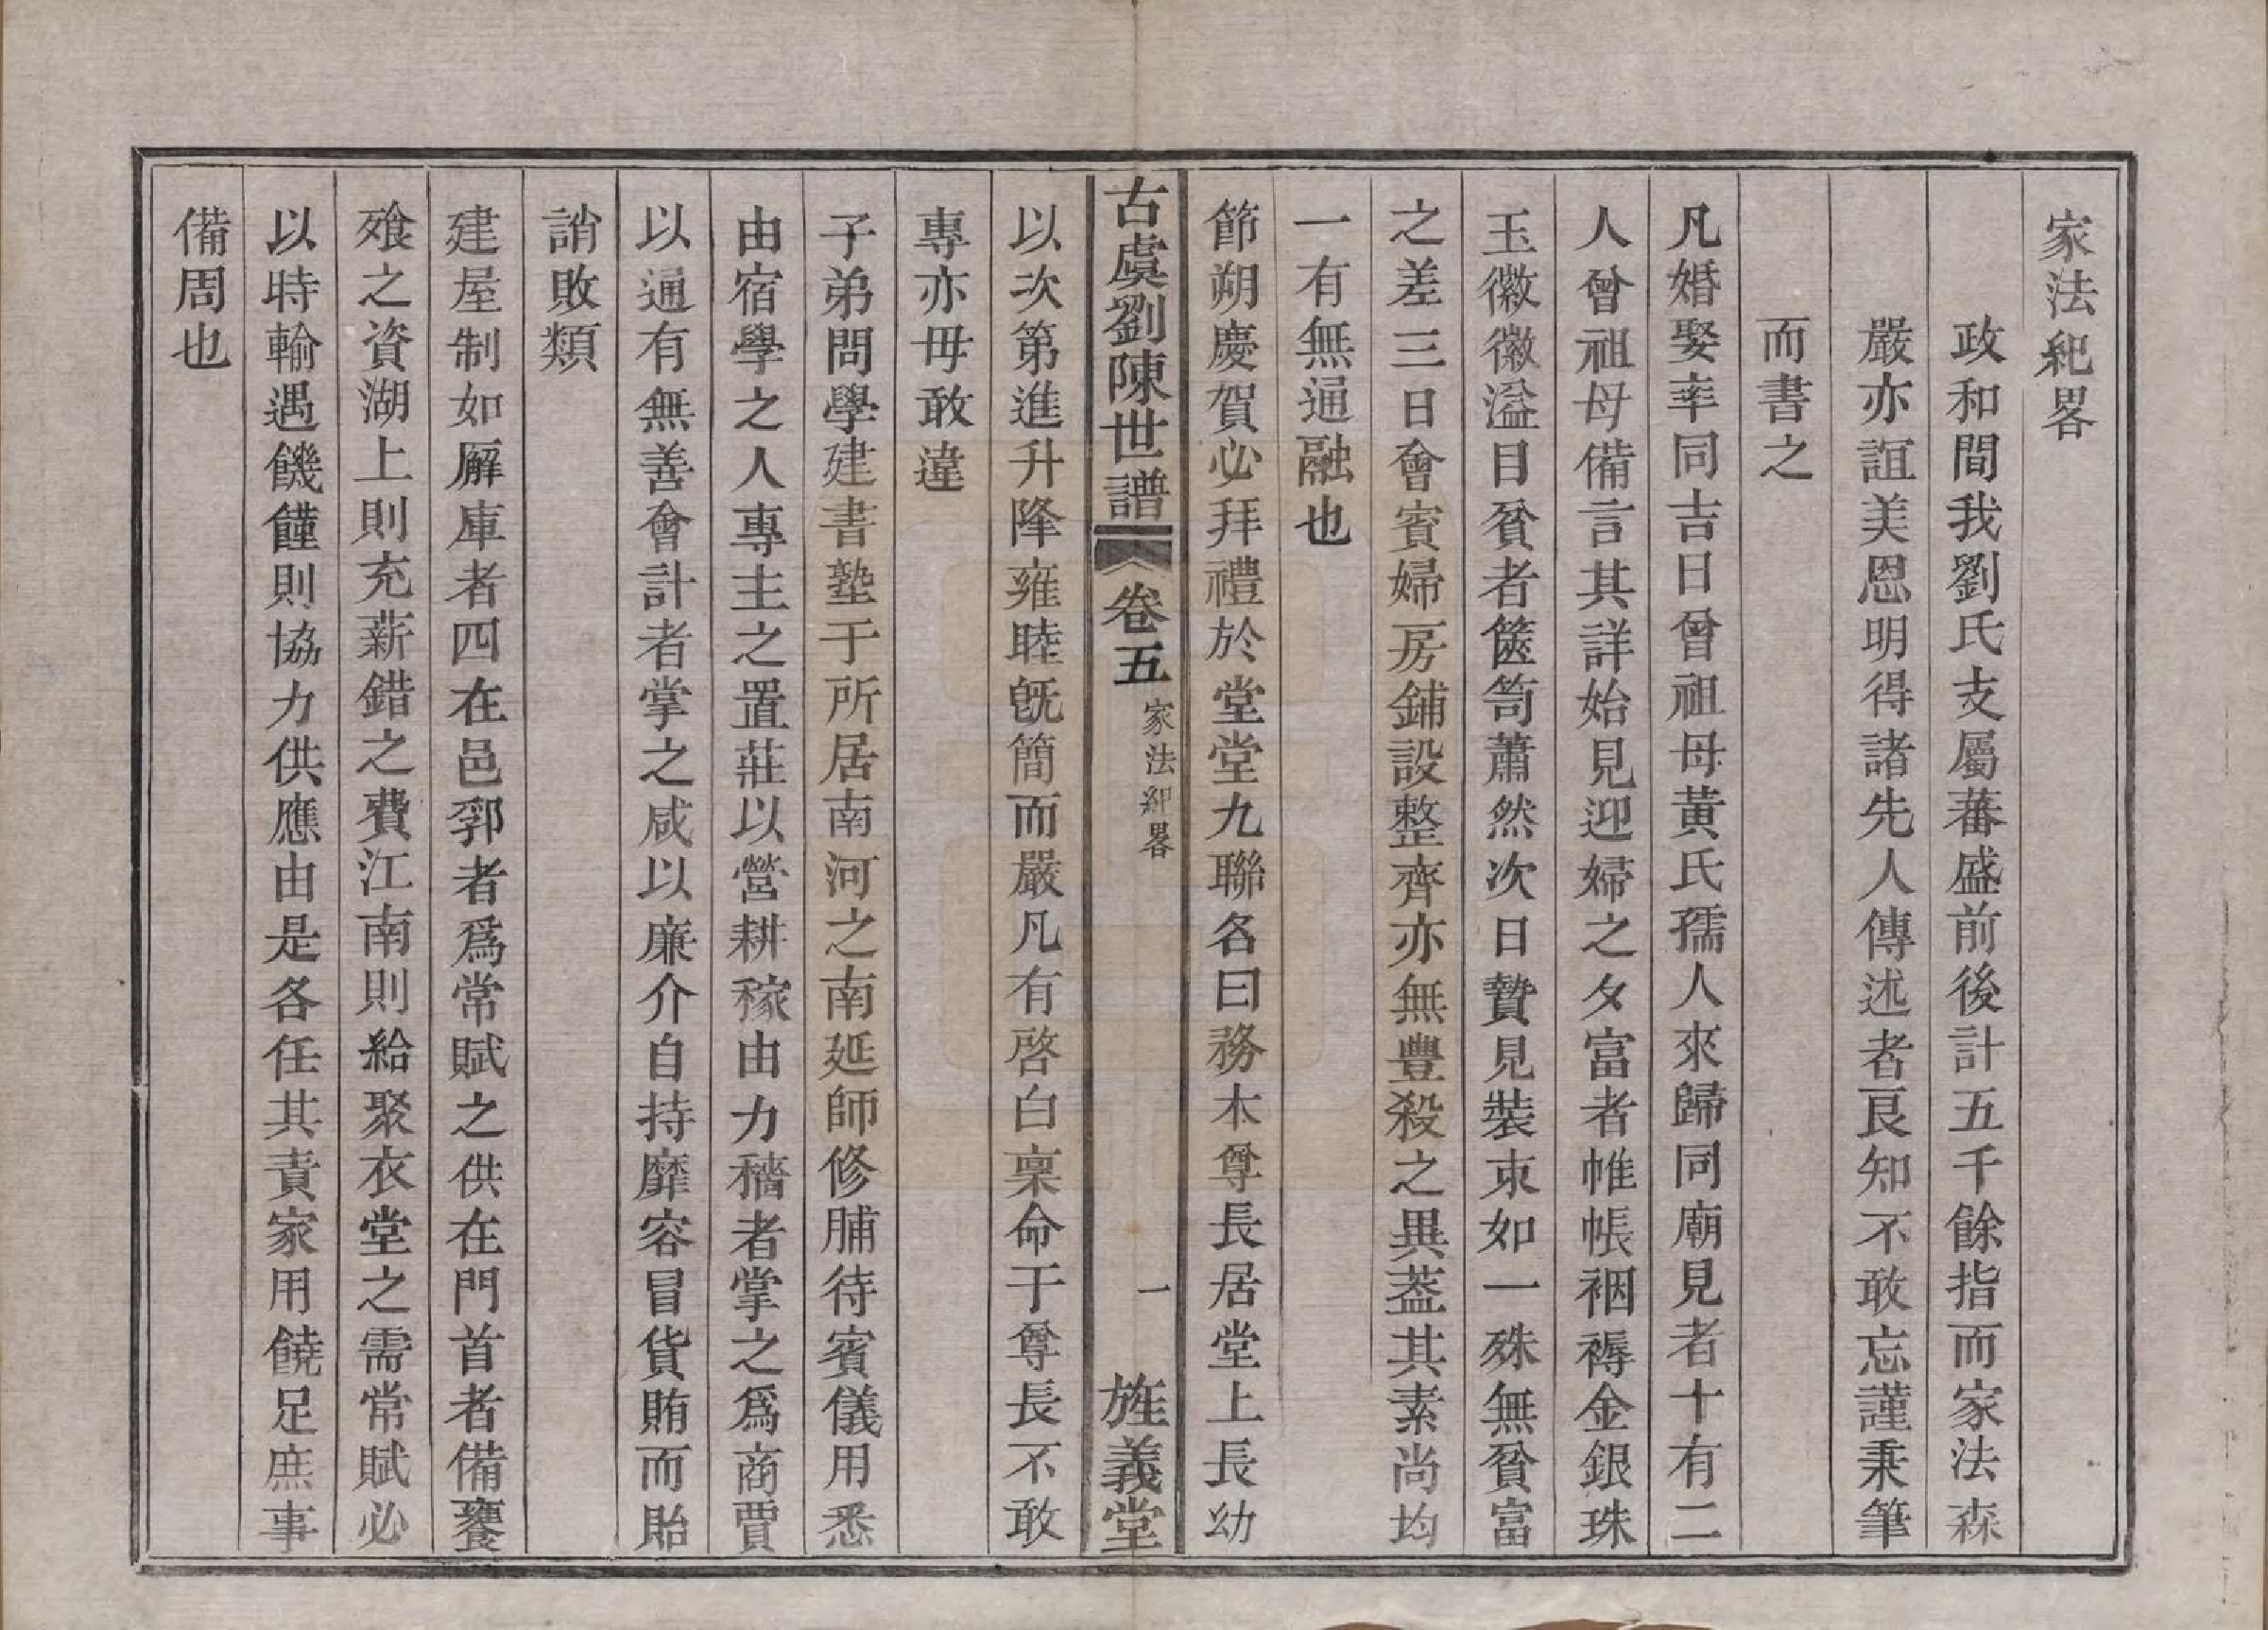 家法紀畧
政和間我劉氏支屬蕃盛前後計五千餘指而家法森
嚴亦誼美恩明得諸先人傳述者良知不敢忘謹秉筆
而書之
凡婚娶率同吉日曾祖母黃氏孺人來歸同廟見者十有二
人曾祖母備言其詳始見迎婦之夕富者帷帳裀褥金銀珠
玉徽徽溢目貧者篋笥蕭然次日贄見裝束如一殊無貧富
之差三日會賓婦房鋪設整齊亦無豐殺之異葢其素尚均
一有無通融也
節朔慶賀必拜禮於堂堂九聯各曰務本尊長居堂上長幼
古虞劉陳世譜 卷五 家法紀畧 一 旌義堂
以次第進升降雍睦旣簡而嚴凡有啓白稟命于尊長不敢
專亦毋敢違
子弟問學建書塾于所居南河之南延師修脯待賓儀用悉
由宿學之人專主之置莊以營耕稼由力穡者掌之爲商賈
以通有無善會計者掌之咸以廉介自持靡容冒貨賄而貽
誚敗類
建屋制如廨庫者四在邑郛者爲常賦之供在門首者備饔
飱之資湖上則充薪錯之費江南則給聚衣堂之需常賦必
以時輸遇饑饉則協力供應由是各任其責家用饒足庶事
備周也